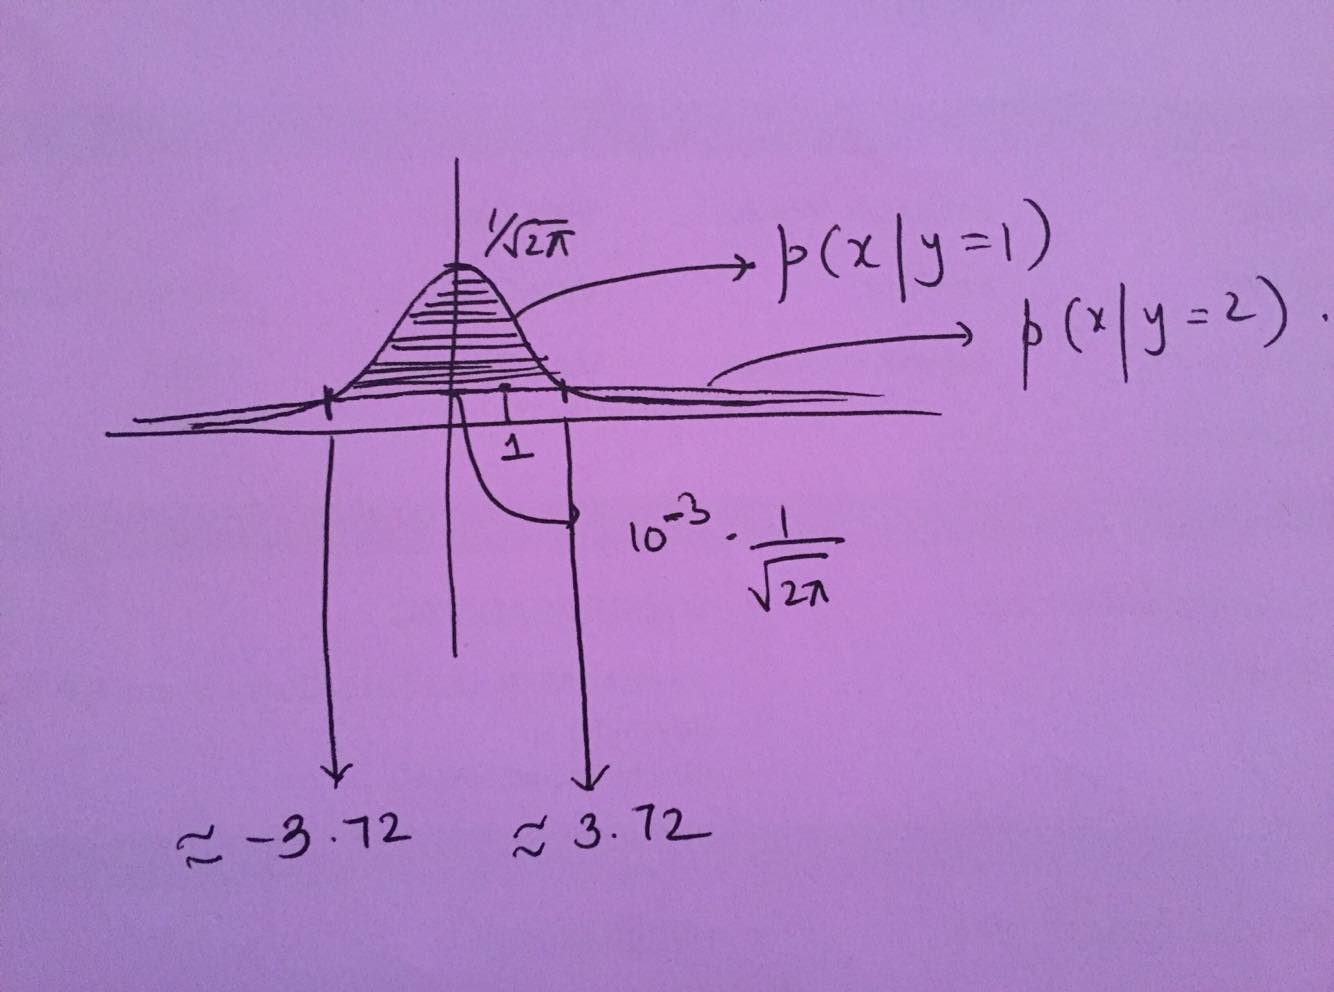 1/√2π
p(x|y=1)
p(x|y=2).
1
10⁻³ · 1/√2π
≈ -3.72
≈ 3.72